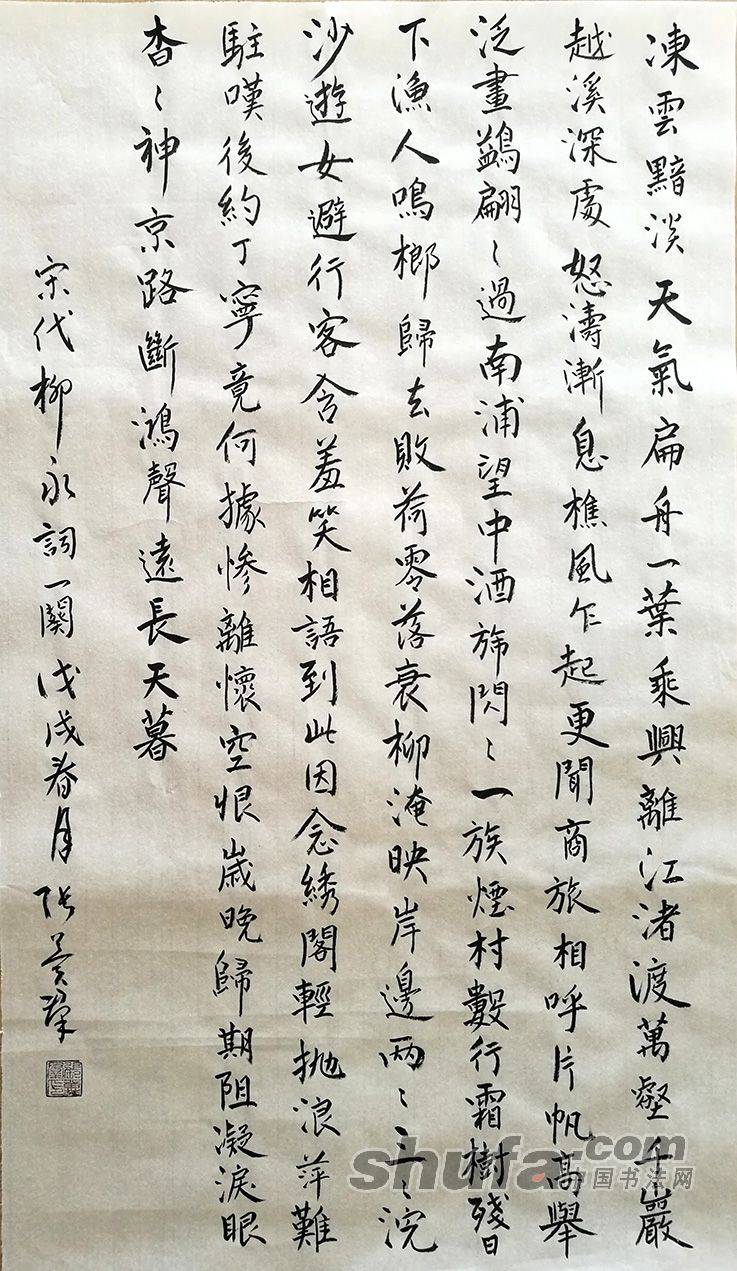 凍雲黯淡天氣扁舟一葉乘興離江渚渡萬壑千巖
越溪深處怒濤漸息樵風乍起更聞商旅相呼片帆高舉
泛畫鷁翩〻過南浦望中酒旆閃〻一族煙村數行霜樹殘日
下漁人鳴榔歸去敗荷零落衰柳淹映岸邊兩〻三〻浣
沙遊女避行客含羞笑相語到此因念綉閣輕拋浪萍難
駐嘆後約丁寧竟何據慘離懷空恨歲晚歸期阻凝淚眼
杳〻神京路斷鴻聲遠長天暮
宋代柳永詞一闋戊戌春月張
shufa.com
中国书法网